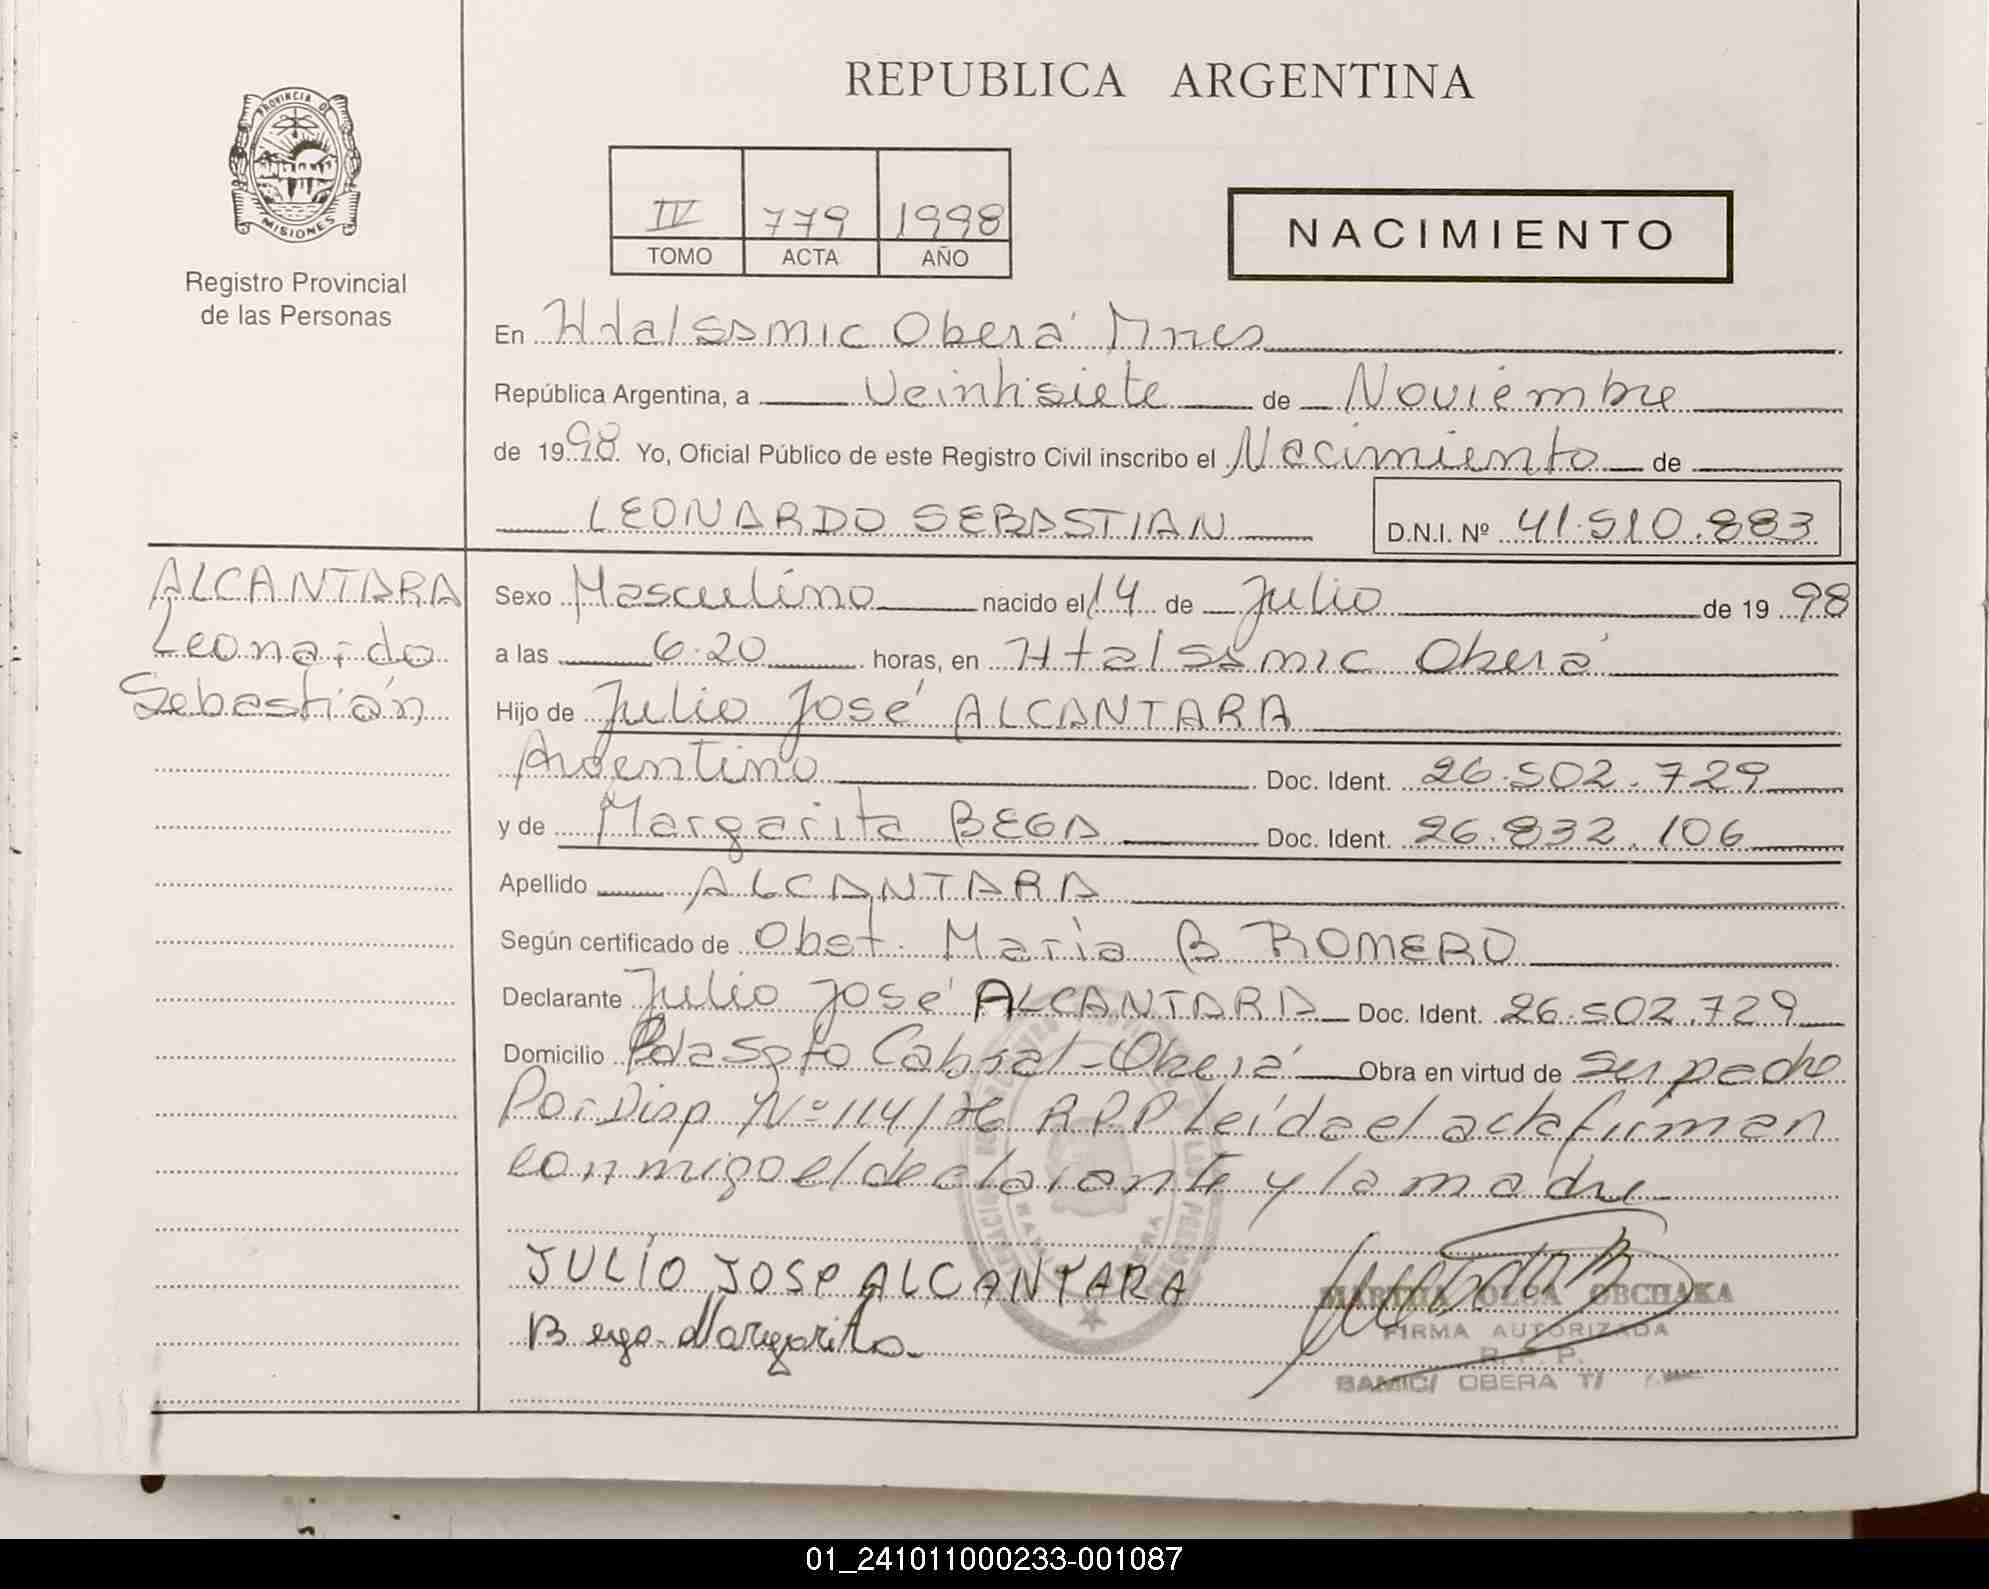 REPUBLICA ARGENTINA
PROVINCIA DE
MISIONES
Registro Provincial
de las Personas
IV 779 1998
TOMO ACTA AÑO
NACIMIENTO
En Htal SSMIC Oberá Mnes
República Argentina, a Veintisiete de Noviembre
de 1998 Yo, Oficial Público de este Registro Civil inscribo el Nacimiento de
LEONARDO SEBASTIAN D.N.I. Nº 41.510.883
ALCANTARA
Leonardo
Sebastián
Sexo Masculino nacido el 14 de Julio de 1998
a las 6.20 horas, en Htal SSMIC Oberá
Hijo de Julio José ALCANTARA
Argentino Doc. Ident. 26.502.729
y de Margarita BEGA Doc. Ident. 26.832.106
Apellido ALCANTARA
Según certificado de Obst. Maria B ROMERO
Declarante Julio José ALCANTARA Doc. Ident. 26.502.729
Domicilio Pda Sgto Cabral - Oberá Obra en virtud de ser padre
Por Disp Nº 114/76 R.P.P Leída el acta firman
conmigo el declarante y la madre
JULIO JOSE ALCANTARA
Bega Margarita
MARTHA OLGA OBCHAKA
FIRMA AUTORIZADA
R. P. P.
SAMIC/ OBERA T/
01_241011000233-001087